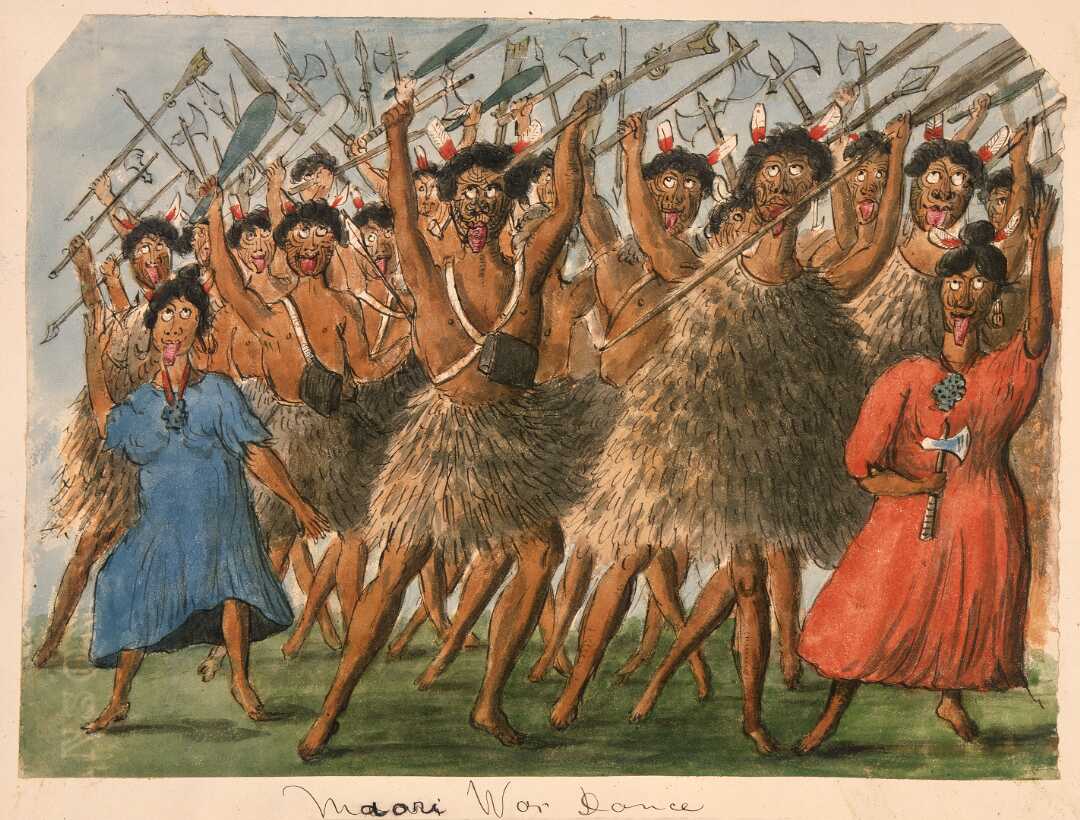 Maori War Dance